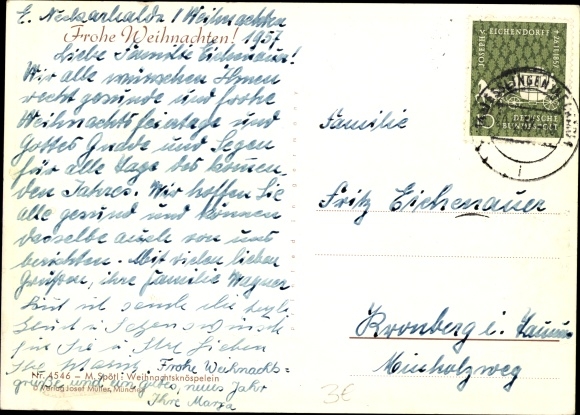 E. Neckarhalde / Weihnachten
1957
Frohe Weihnachten!
Liebe Familie Eichenauer!
Wir alle wünschen Ihnen
recht gesunde und frohe
Weihnachtsfeiertage und
Gottes Gnade und Segen
für alle Tage des kommen-
den Jahres. Wir hoffen Sie
alle gesund und können
dasselbe auch von uns
berichten. Mit vielen lieben
Grüßen, ihre Familie Wagner
für Sie u Ihre Lieben
Frohe Weihnachts-
grüße und ein gutes neues Jahr
Ihre Marga
Nr. 4546 – M. Spötl: Weihnachtsknösplein
© Verlag Josef Müller, München
JOSEPH V. EICHENDORFF
† 26.11.1857
DEUTSCHE
BUNDESPOST
Familie
Fritz Eichenauer
Kronberg i. Taunus
Minholzweg
3€